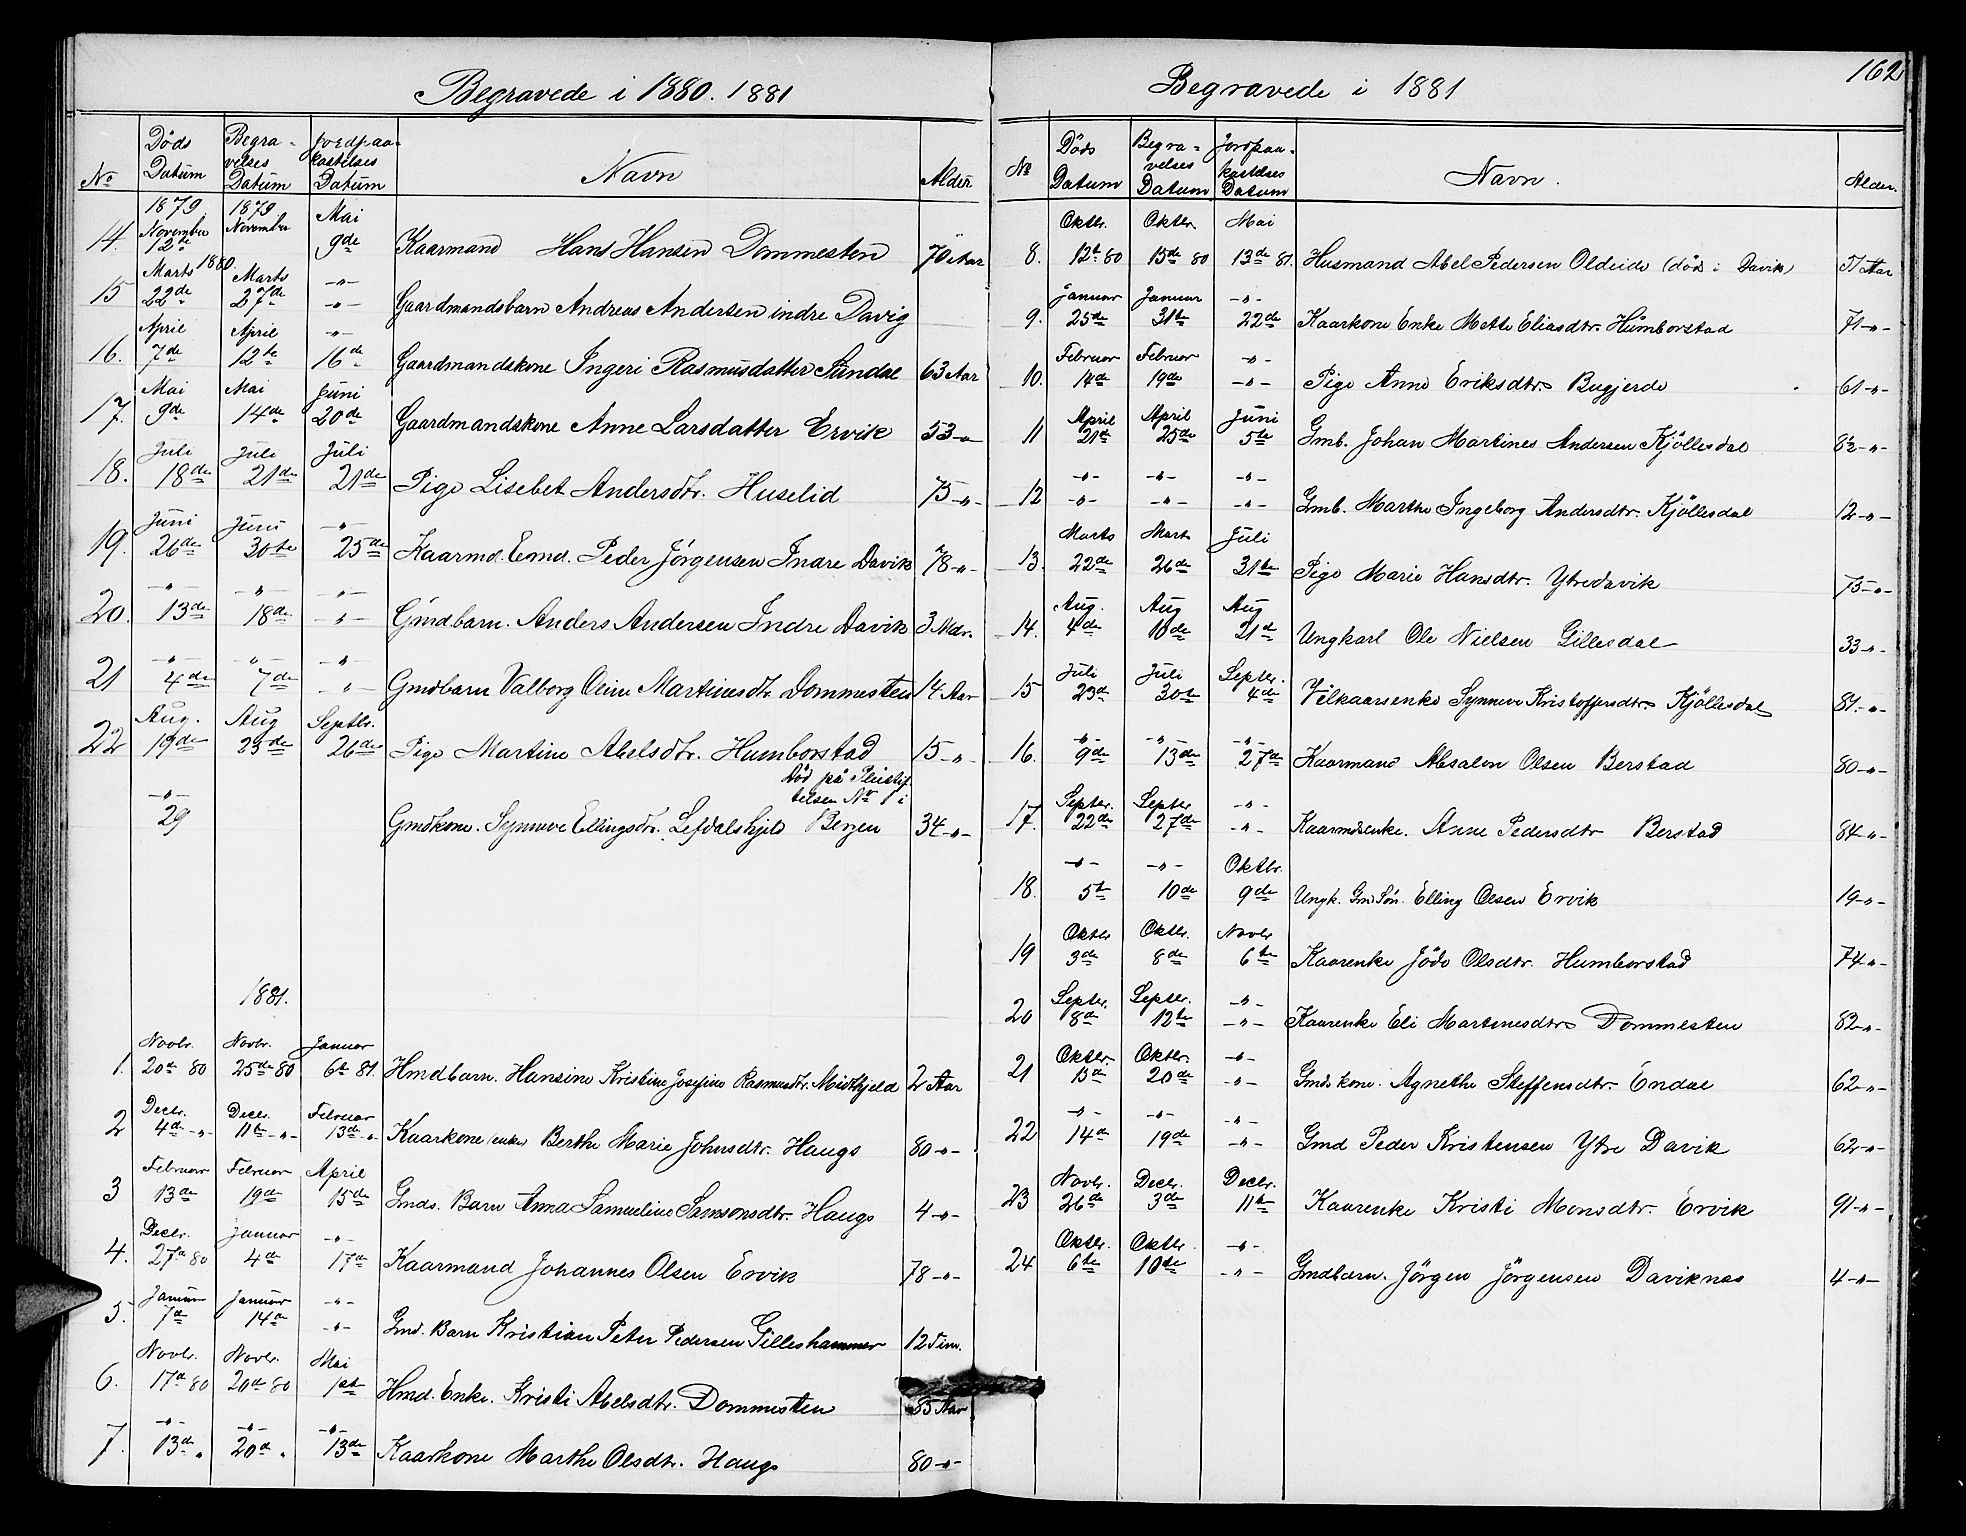 Begravede i 1880. 1881
No Døds Datum Begravelses Datum Jordpaakastelses Datum Navn Alder
14. 1879 November 12te 1879 November Mai 9de Kaarmand Hans Hansen Dommesten 70 Aar
15 Marts 1880. 22de Marts 27de -"- -"- Gaardmandsbarn Andreas Andersen indre Davig
16. April 7de April 12te -"- 16de Gaardmandskone Ingeri Rasmusdatter Sundal 63 Aar
17. Mai 9de Mai 14de Juni 20de Gaardmandskone Anne Larsdatter Ervik 53 -"-
18. Juli 18de Juli 21de Juli 21de Pige Lisebet Andersdtr. Huselid 75 -"-
19. Juni 26de Juni 30te -"- 25de Kaarmd. Emd. Peder Jørgensen Indre Davik 78 -"-
20. -"- 13de -"- 18de -"- -"- Gmdbarn. Anders Andersen Indre Davik 3 Mdr.
21 -"- 4de -"- 7de -"- -"- Gmdbarn Valborg Oline Martinusdtr. Dommesten 14 Aar
22 Aug. 19de Aug 23de Septbr. 26de Pige Martine Abelsdtr. Humborstad 15 -"-
-"- 29 Gmdkone. Synneve Ellingsdtr. Lefdalshjeld Død på Pleistiftelsen No 1 i Bergen 34 -"-
1881.
1. Novbr. 20de 80 Novbr. 25de 80 Januar 6te 81. Hmdbarn. Hansine Kristine Josefine Rasmusdtr. Midthjeld 2 Aar
2 Decbr. 4de -"- Decbr. 11te -"- Februar 13de " Kaarkone (enke) Berthe Marie Johnsdtr. Haugs 80 -"-
3 Februar 13de Februar 19de April 15de Gmds. Barn Anna Samueline Samsonsdtr. Haugs 4 -"-
4. Decbr. 27de 80 Januar 4de -"- 17de Kaarmand Johannes Olsen Ervik 78 -"-
5. Januar 7de Januar 14de -"- -"- Gmd. Barn Kristian Peter Pedersen Gilleshammer 12 Tim.
6. Novbr. 17de 80 Novbr. 20de 80 Mai 1ste Hmd. Enke. Kristi Abelsdtr. Dommesten 85 Aar
7. -"- 13de " -"- 20de " -"- 13de Kaarkone Marthe Olsdtr. Haugs 80 -"-
Begravede i 1881
162
No Døds Datum Begravelses Datum Jordpaakastelses Datum Navn. Alder.
8. Oktbr. 12te 80 Oktbr. 15de 80 Mai 13de 81. Husmand Abel Pedersen Oldeide (død i Davik) 51 Aar
9. Januar 25de Januar 31te -"- 22de Kaarkone Enke Mette Eliasdtr. Humborstad 71 -"-
10. Februar 14de Februar 19de -"- -"- Pige Anne Eriksdtr. Bugjerde 61 -"-
11 April 21de April 25de Juni 5te Gmb. Johan Martines Andersen Kjöllesdal 8½ -"-
12 -"- -"- -"- -"- -"- -"- Gmb. Marthe Ingeborg Andersdtr. Kjöllesdal 12 -"-
13. Marts 22de Marts 26de Juli 31te Pige Marie Hansdtr. Ytredavik 75 -"-
14. Aug. 4de Aug 10de Aug 21de Ungkarl Ole Nielsen Gillesdal 33 -"-
15 Juli 23de Juli 30te Septbr. 4de Vilkaarsenke Synneve Kristoffersdtr. Kjöllesdal 81. -"-
16. -"- 9de -"- 13de -"- 27de Kaarmand Absalon Olsen Berstad 80 -"-
17. Septbr. 22de Septbr 27de -"- -"- Kaarmdsenke. Anne Pedersdtr Berstad 84 -"-
18. -"- 5te -"- 10de Oktbr. 9de Ungk. Gmd Søn. Elling Olsen Ervik 19 -"-
19 Oktbr 3de Oktbr. 8de Novbr 6te Kaarenke Jöde Olsdtr. Humborstad 74 -"-
20 Septbr. 8de Septbr. 12te -"- -"- Kaarenke Eli Martinusdtr. Dommesten 82 -"-
21 Oktbr. 13de Oktbr. 20de -"- -"- Gmds kone. Agnethe Steffensdtr. Endal 62 -"-
22 -"- 14de -"- 19de -"- -"- Gmd Peder Kristensen Ytre Davik 62 -"-
23 Novbr. 26de Decbr. 3de Decbr. 11te Kaarenke Kristi Monsdtr. Ervik 91 -"-
24 Oktbr. 6te Oktbr. 10de -"- -"- Gmdbarn. Jörgen Jörgensen Daviknes 4 -"-